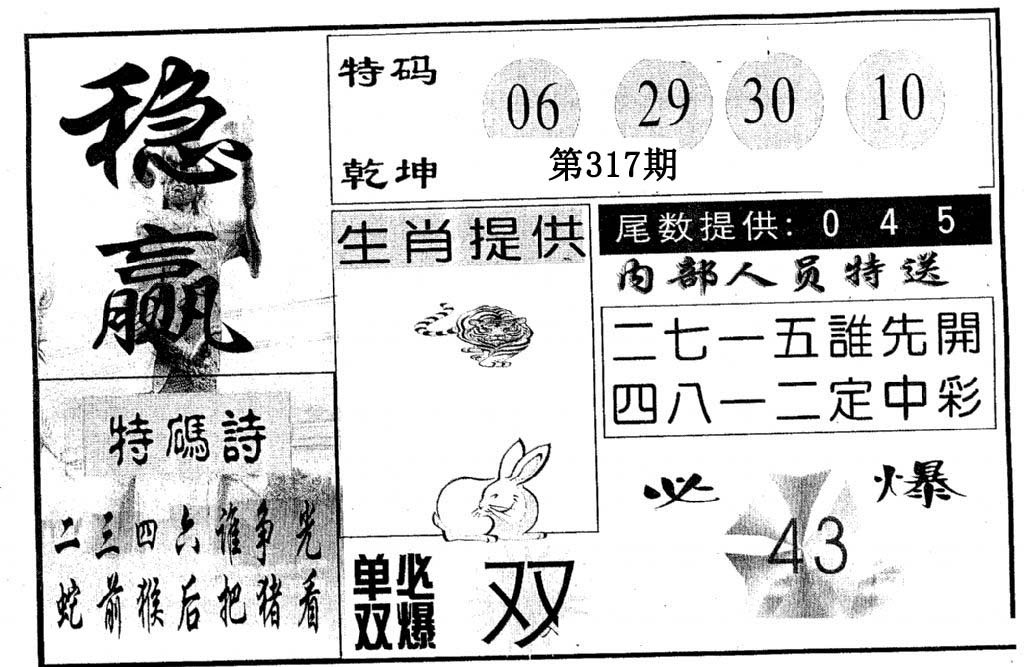 稳
赢
特码
乾坤
06 29 30 10
第317期
生肖提供
尾数提供: 0 4 5
内部人员特送
二七一五誰先開
四八一二定中彩
特碼詩
二三四六谁争光
蛇前猴后把猪看
必爆
43
单双必爆
双